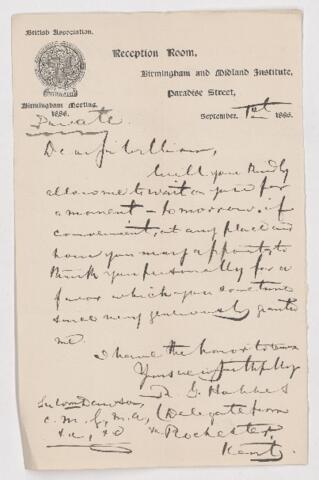 British Association.
Reception Room,
Birmingham and Midland Institute,
Paradise Street,
Birmingham Meeting,
1886.
September 1st 1886.
Private
Dear Sir William,
Will you kindly
allow me to wait on you for
a moment – tomorrow, if
convenient, at any place and
hour you may appoint, to
thank you personally for a
favor which you sometime
since very generously granted
me.
I have the honor to be
Yours faithfully
Sir Wm Dawson,
C.M.G., M.A, (Delegate from
&c, &c Rochester,
Kent)